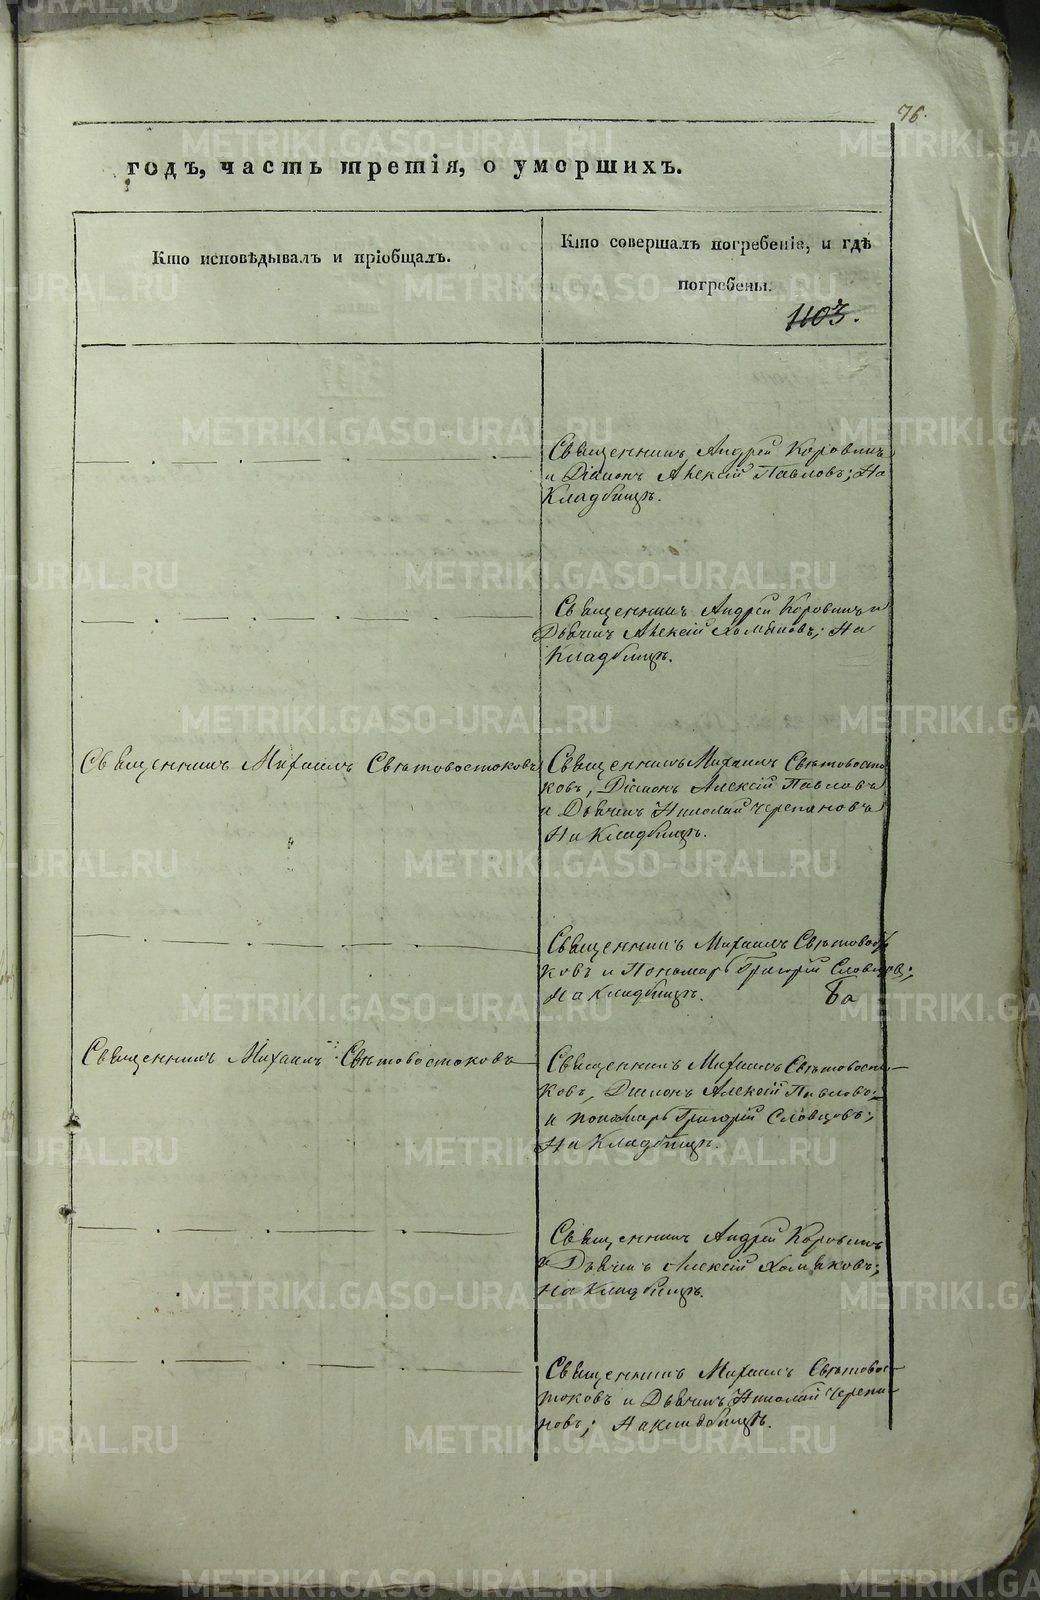 76.
годъ, часть третія, о умершихъ.
Кто исповѣдывалъ и пріобщалъ.
Кто совершалъ погребеніе, и гдѣ
погребены.
1103.
Священникъ Андрей Коровинъ
и Діаконъ Алексій Павловъ; На
Кладбищѣ.
Священникъ Андрей Коровинъ и
Дьячикъ Алексій Хомяковъ; На
Кладбищѣ.
Священникъ Михаилъ Свѣтовостоковъ
Священникъ Михаилъ Свѣтовосто
ковъ, Діаконъ Алексій Павловъ
и Дьячикъ Николай Черепановъ
На Кладбищѣ.
Священникъ Михаилъ Свѣтовост
ковъ и Пономарь Григорій Словцов;
На Кладбищѣ.
Священникъ Михаилъ Свѣтовостоковъ
Священникъ Михаилъ Свѣтовосто-
ковъ, Діаконъ Алексій Павловъ;
и пономарь Григорій Словцовъ;
На Кладбищѣ.
Священникъ Андрей Коровинъ
и Дьячикъ Алексій Хомяковъ;
на Кладбищѣ.
Священникъ Михаилъ Свѣтовос-
токовъ и Дьячикъ Николай Черепа-
новъ; На кладбищѣ.
METRIKI.GASO-URAL.RU